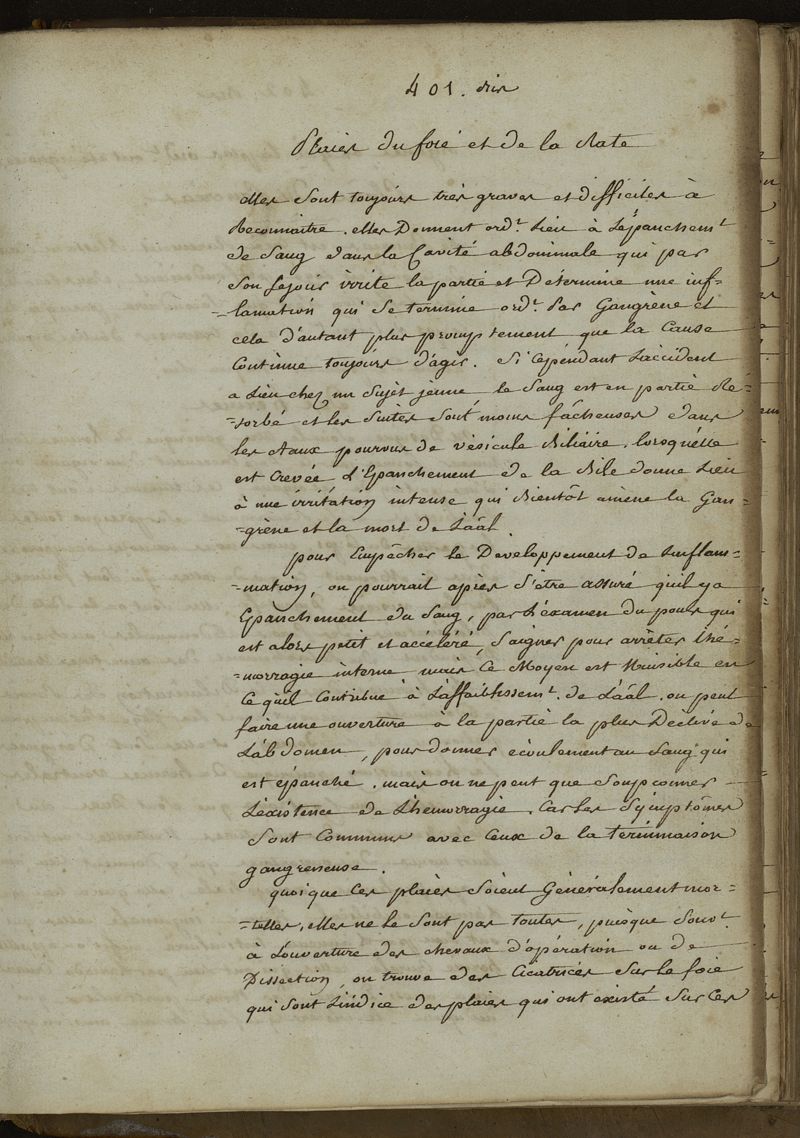 401. dix
Plaies du foie et de la Rate
elles sont toujours très graves et difficiles à
Reconnaitre. elles Donnent ord.t Lieu à L'épanchem.t
de Sang dans la Cavité abdominale qui par
Son Sejour irrite la partie et Détermine une inf-
-lamation qui Se termine ord.t Par Gangrène et
cela d'autant plus promptement que la Cause
Continue toujours d'agir. Si Cépendant L'accident
a Lieu chez un Sujet jeune le Sang est en partie Ré-
-sorbé et les Suites Sont moins fâcheuses dans
les Aaux pourvus de vésicule Biliaire. lorsquélle
est Crevée L'Epanchement de la Bile donne Lieu
à une irritation intense qui Bientôt amène la Gan-
-grène et la mort de L'aâl.
pour Empêcher le Developpement de Linflam-
-mation, on pourrait après S'être assuré quil y a
Epanchement du Sang, par L'éxamen du pouls qui
est alors petit et accéléré, Saigner pour arrêter L'hé-
-morragie interne mais Ce Moyen est Nuisible en
Ce quil Contribue à L'affaiblissem.t de L'aâl. on peut
faire une ouverture à la partie la plus Déclive de
L'abdomen, pour donner écoulement au Sang qui
est épanché. mais on ne peut que Soupconner
L'éxistence de L'hémorragie. Car les Symptômes
Sont Communs avec Ceux de la terminaison
gangreneuse.
quoique Ces plaies Soient Généralement mor-
-telles, elles ne le Sont pas toutes, puisque Souv.t
à L'ouverture des chevaux d'opération ou de
Dissection, on trouve des Cicatrices Sur le foie
qui Sont L'indice des plaies qui ont existé Sur Ces